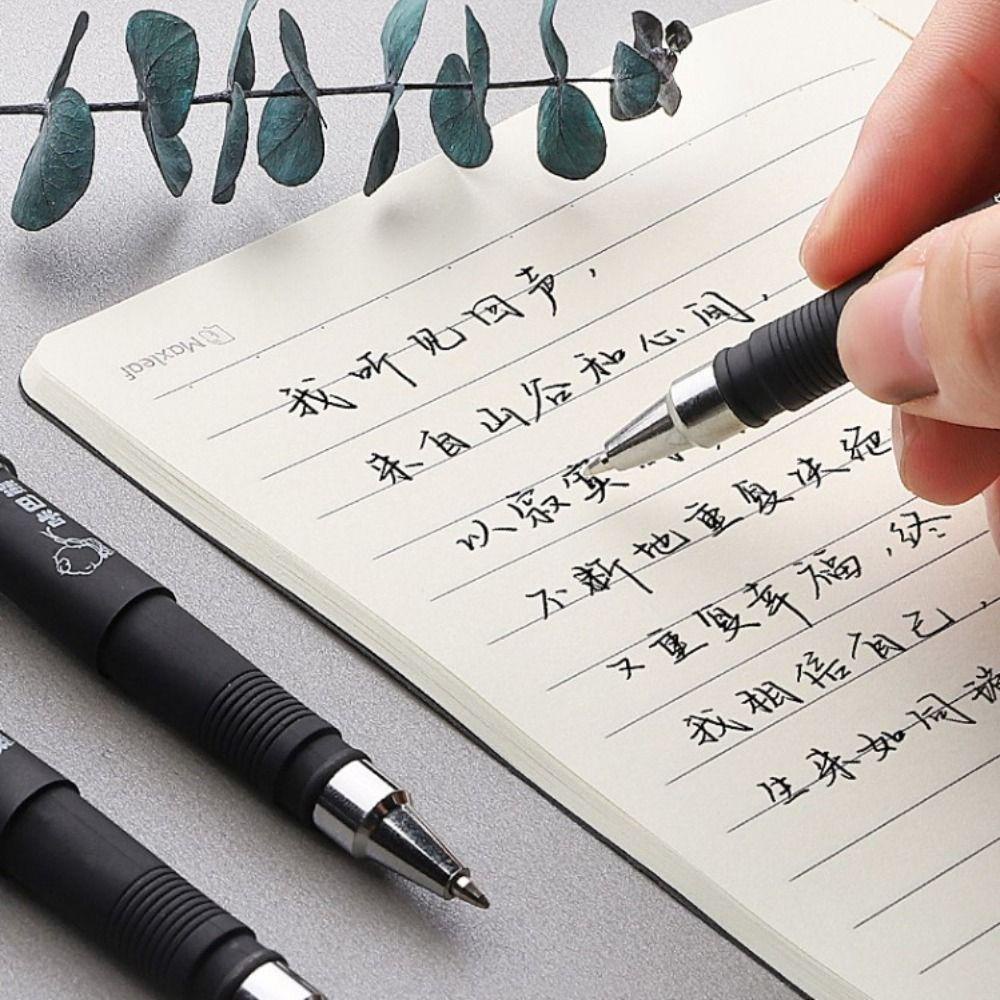 Maxleaf
我听见回声，
来自山谷和心间，
以寂寞
不断地重复决绝
又重复幸福，终
我相信自己，
生来如同
味巴熊